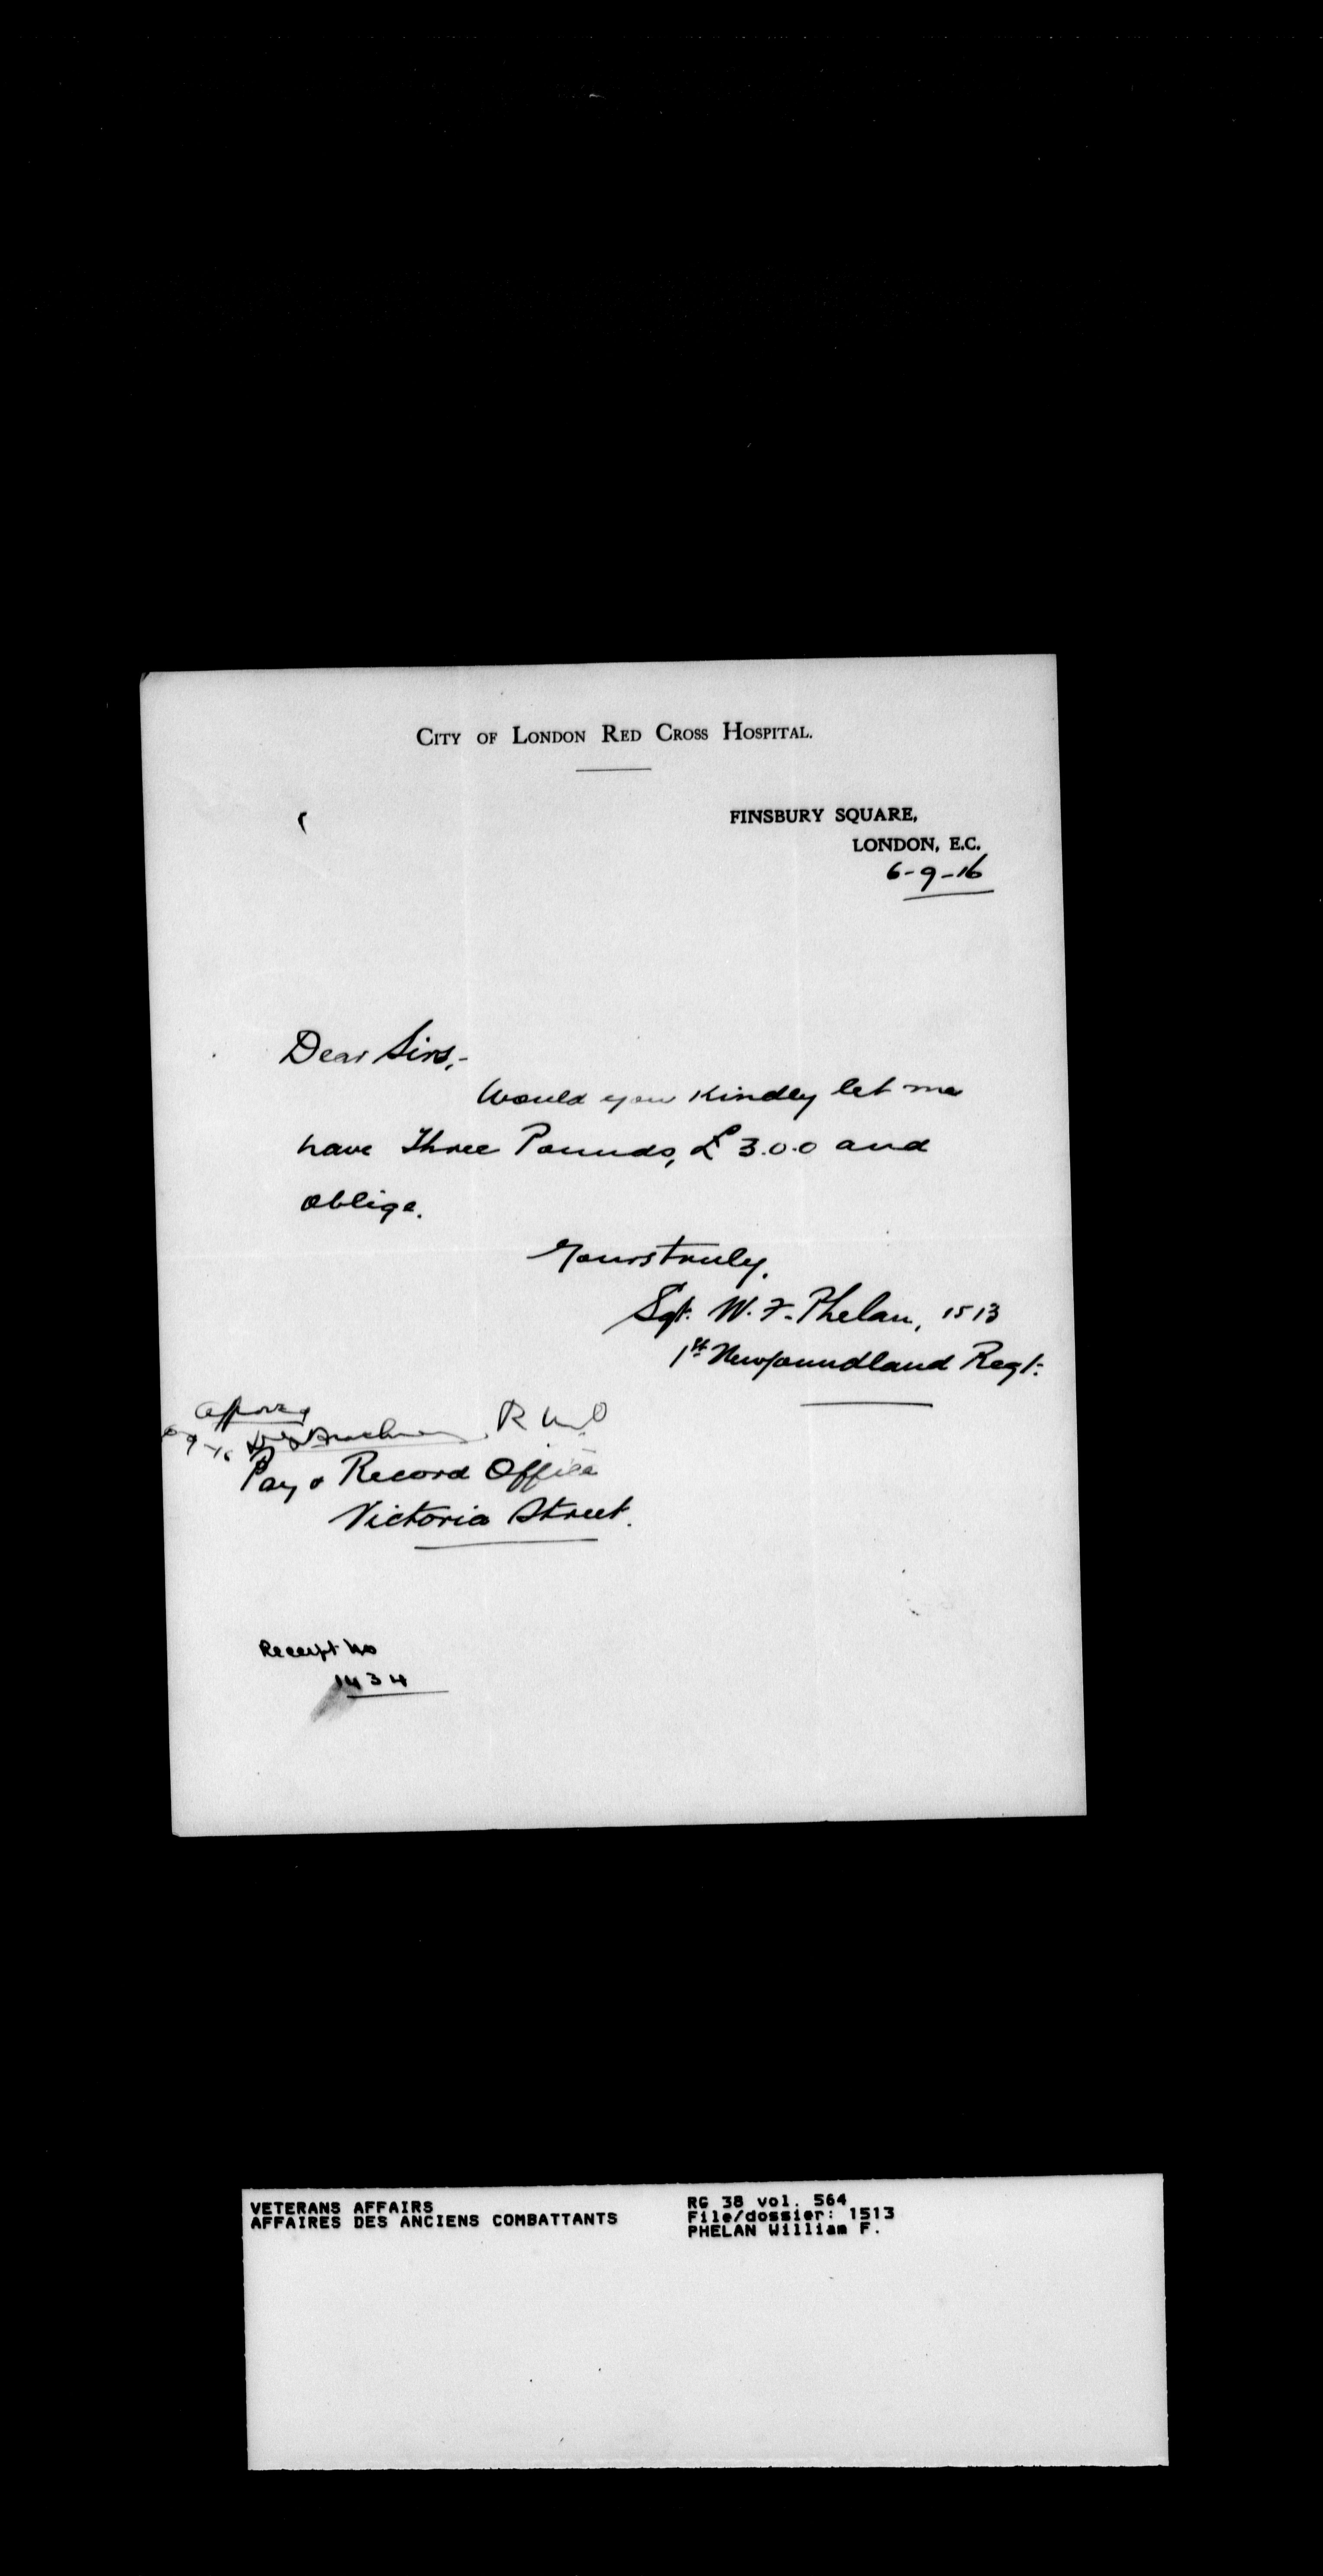 CITY OF LONDON RED CROSS HOSPITAL.
FINSBURY SQUARE,
LONDON, E.C.
6-9-16
Dear Sirs,-
Would you kindly let me
have Three Pounds, £3.0.0 and
oblige.
Yours truly,
Sgt. W. F. Phelan, 1513
1st Newfoundland Regt.
Pay & Record Office
Victoria Street.
Receipt No
1434
VETERANS AFFAIRS
AFFAIRES DES ANCIENS COMBATTANTS
RG 38 vol. 564
File/dossier: 1513
PHELAN William F.